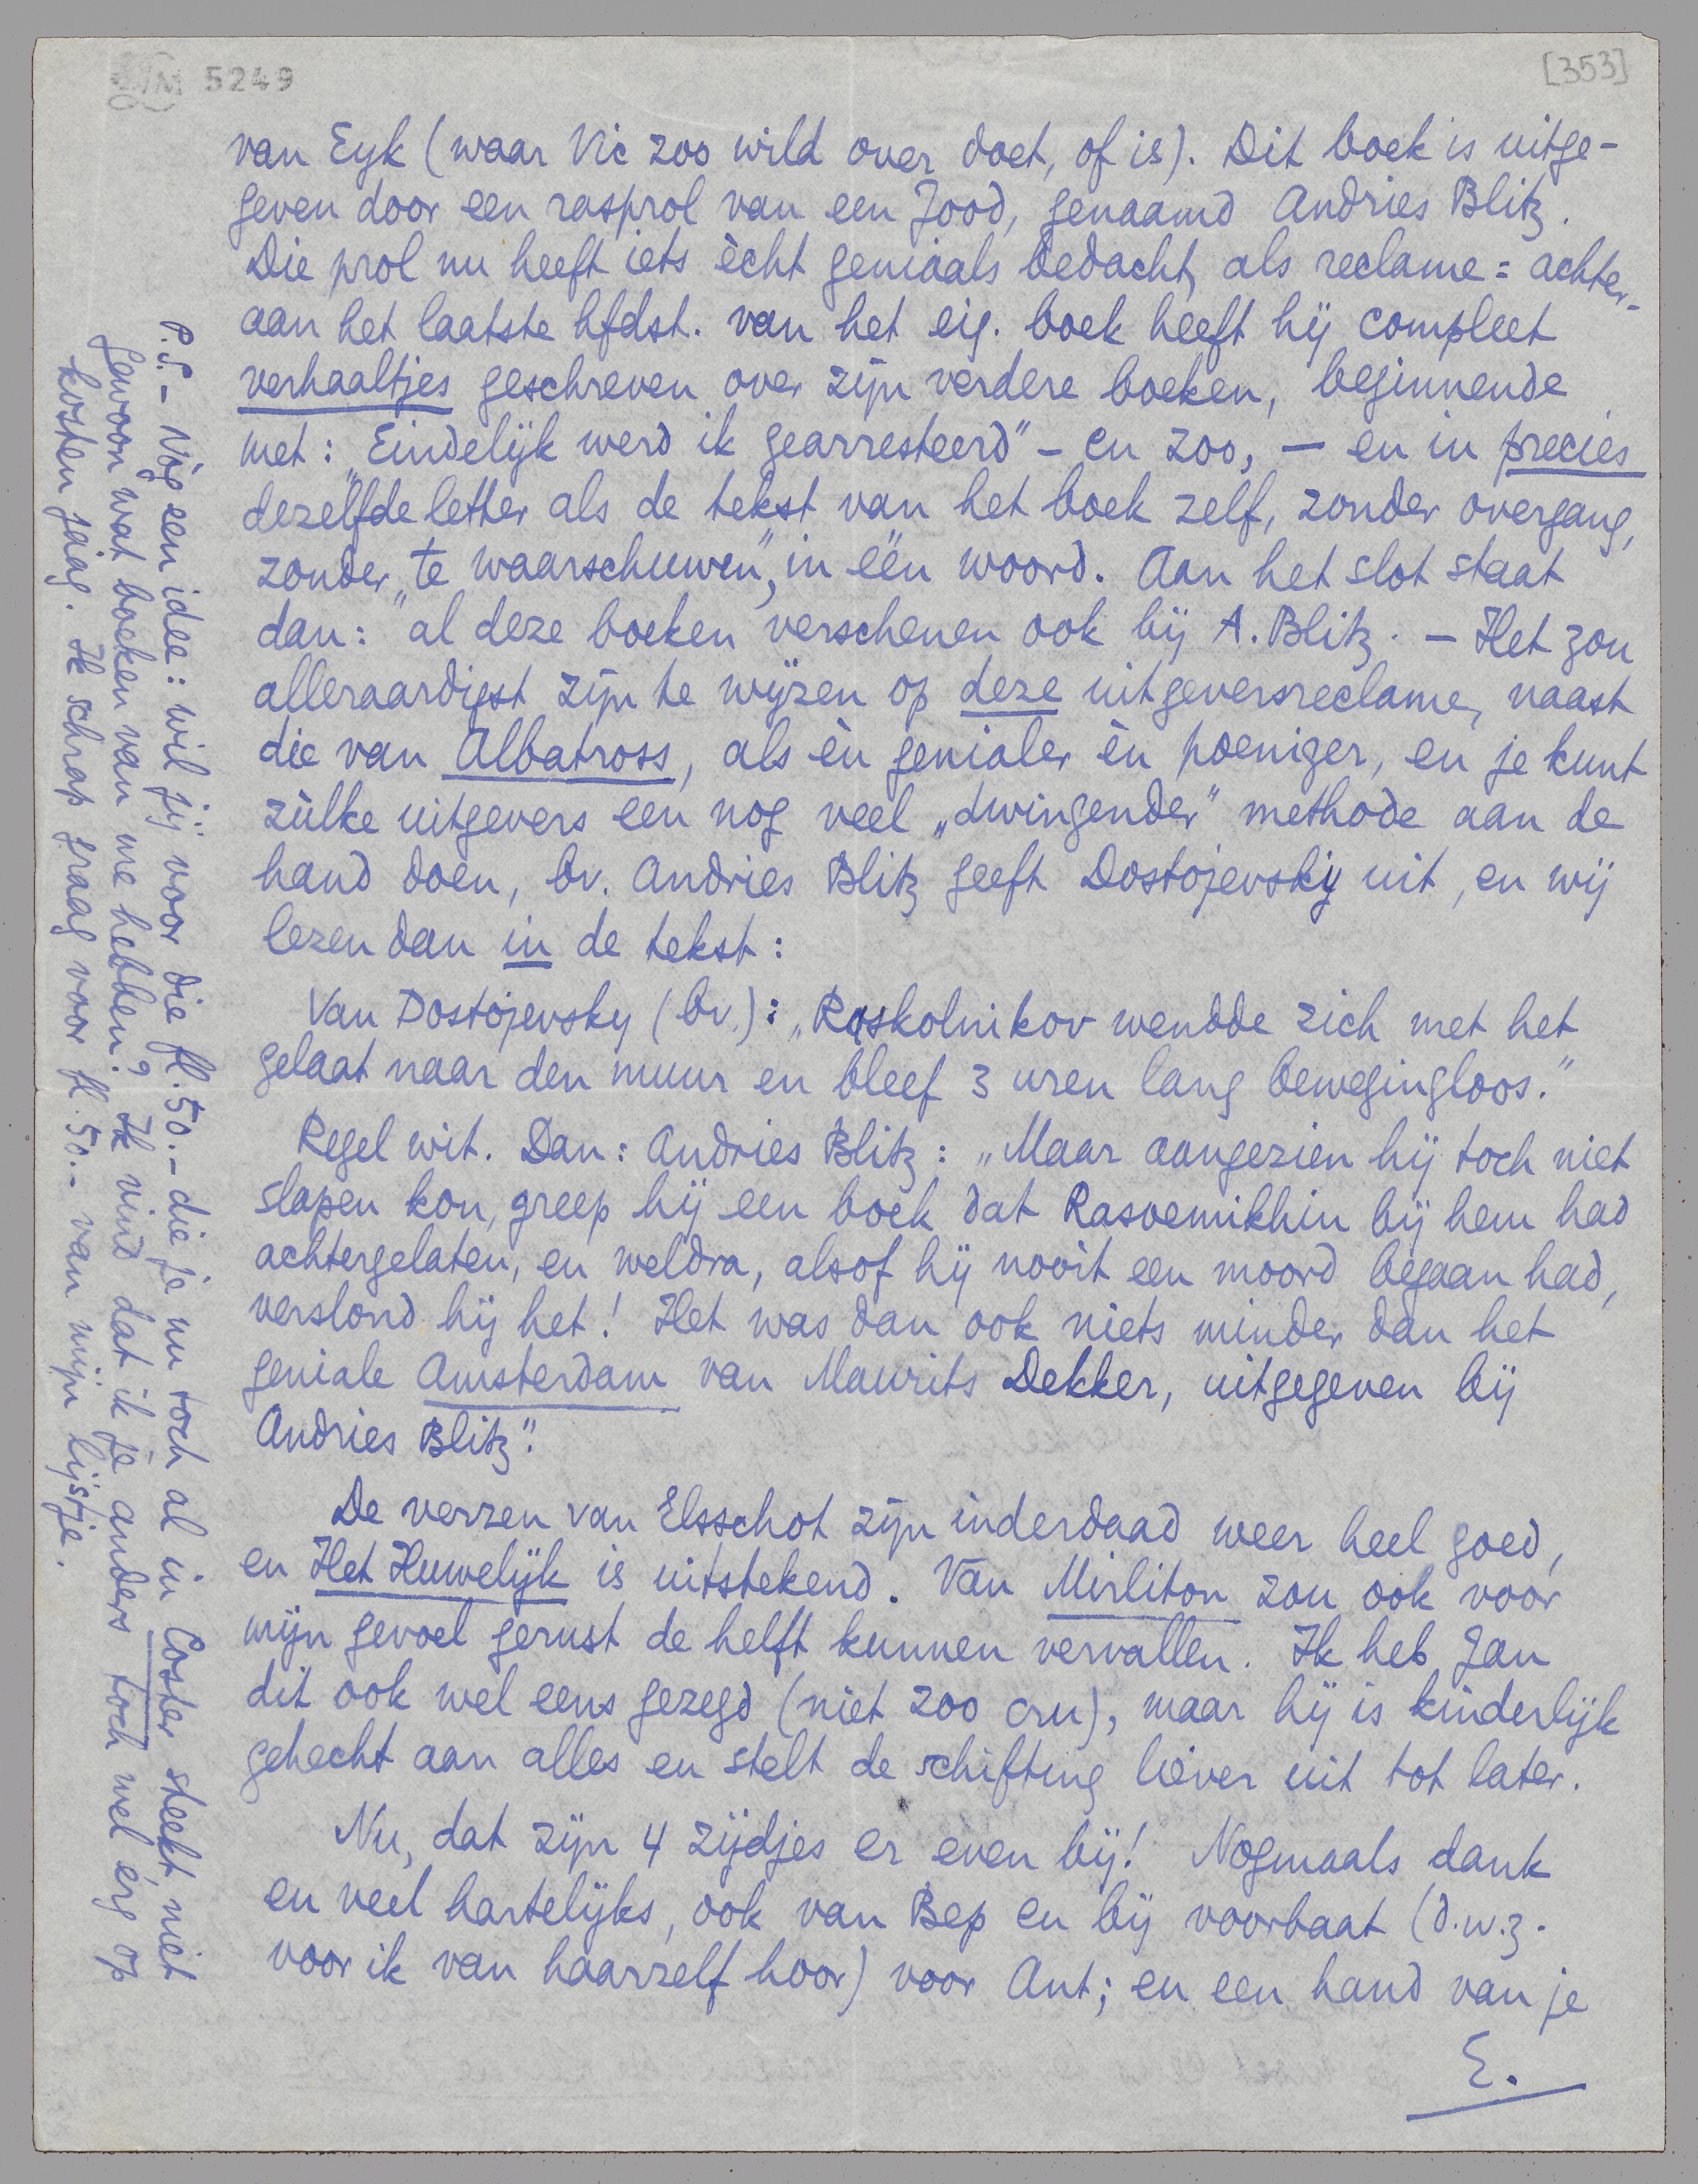 5249
[353]
van Eyk (waar Vic zoo wild over doet, of is). Dit boek is uitge-
geven door een rasprol van een Jood, genaamd Andries Blitz.
Die prol nu heeft iets ècht geniaals bedacht, als reclame = achter-
aan het laatste hfdst. van het eig. boek heeft hij compleet
verhaaltjes geschreven over zijn verdere boeken, beginnende
met: „Eindelijk werd ik gearresteerd” – en zoo, – en in precies
dezelfde letter als de tekst van het boek zelf, zonder overgang,
zonder „te waarschuwen”, in één woord. Aan het slot staat
dan: „al deze boeken verschenen ook bij A. Blitz. – Het zou
alleraardigst zijn te wijzen op deze uitgeversreclame, naast
die van Albatross, als èn genialer èn poeniger, en je kunt
zùlke uitgevers een nog veel „dwingender” methode aan de
hand doen, bv. Andries Blitz geeft Dostojevsky uit, en wij
lezen dan in de tekst:
Van Dostojevsky (bv.): „Raskolnikov wendde zich met het
gelaat naar den muur en bleef 3 uren lang bewegingloos.”
Regel wit. Dan: Andries Blitz: „Maar aangezien hij toch niet
slapen kon, greep hij een boek dat Rasoemikhin bij hem had
achtergelaten, en weldra, alsof hij nooit een moord begaan had,
verslond hij het! Het was dan ook niets minder dan het
geniale Amsterdam van Maurits Dekker, uitgegeven bij
Andries Blitz”.
De verzen van Elsschot zijn inderdaad weer heel goed,
en Het Huwelijk is uitstekend. Van Mirliton zou ook voor
mijn gevoel gerust de helft kunnen vervallen. Ik heb Jan
dit ook wel eens gezegd (niet zoo cru), maar hij is kinderlijk
gehecht aan alles en stelt de schifting liever uit tot later.
Nu, dat zijn 4 zijdjes er even bij! Nogmaals dank
en veel hartelijks, ook van Bep en bij voorbaat (d.w.z.
voor ik van haarzelf hoor) voor Ant; en een hand van je
E.
P.S. – Nòg een idee: wil jij voor die fl. 50.– die je nu toch al in Coster steekt, niet
gewoon wat boeken van me hebben? Ik vind dat ik je anders toch wel érg op
kosten jaag. Ik schrap graag voor fl. 50.– van mijn lijstje.